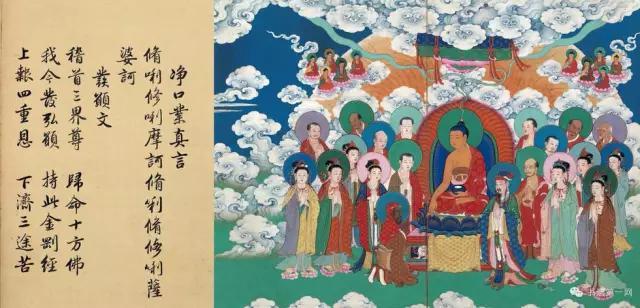 净口業真言
脩唎修唎摩訶脩唎脩修唎薩
婆訶
發願文
稽首三界尊 歸命十方佛
我今發弘願 持此金剛經
上報四重恩 下濟三途苦